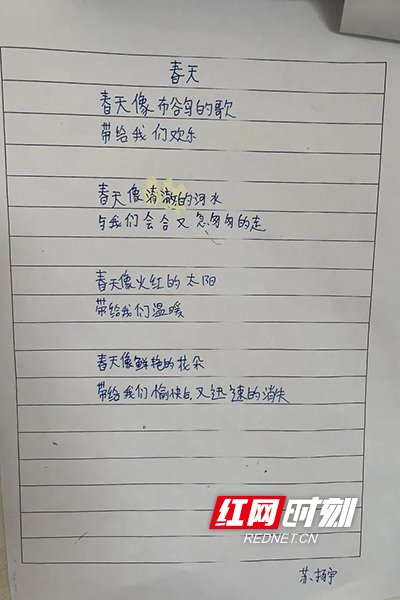 春天
春天像布谷鸟的歌
带给我们欢乐
春天像清澈的河水
与我们会合又忽匆匆的走
春天像火红的太阳
带给我们温暖
春天像鲜艳的花朵
带给我们愉快又迅速的消失
红网时刻
REDNET.CN
苏扬宇